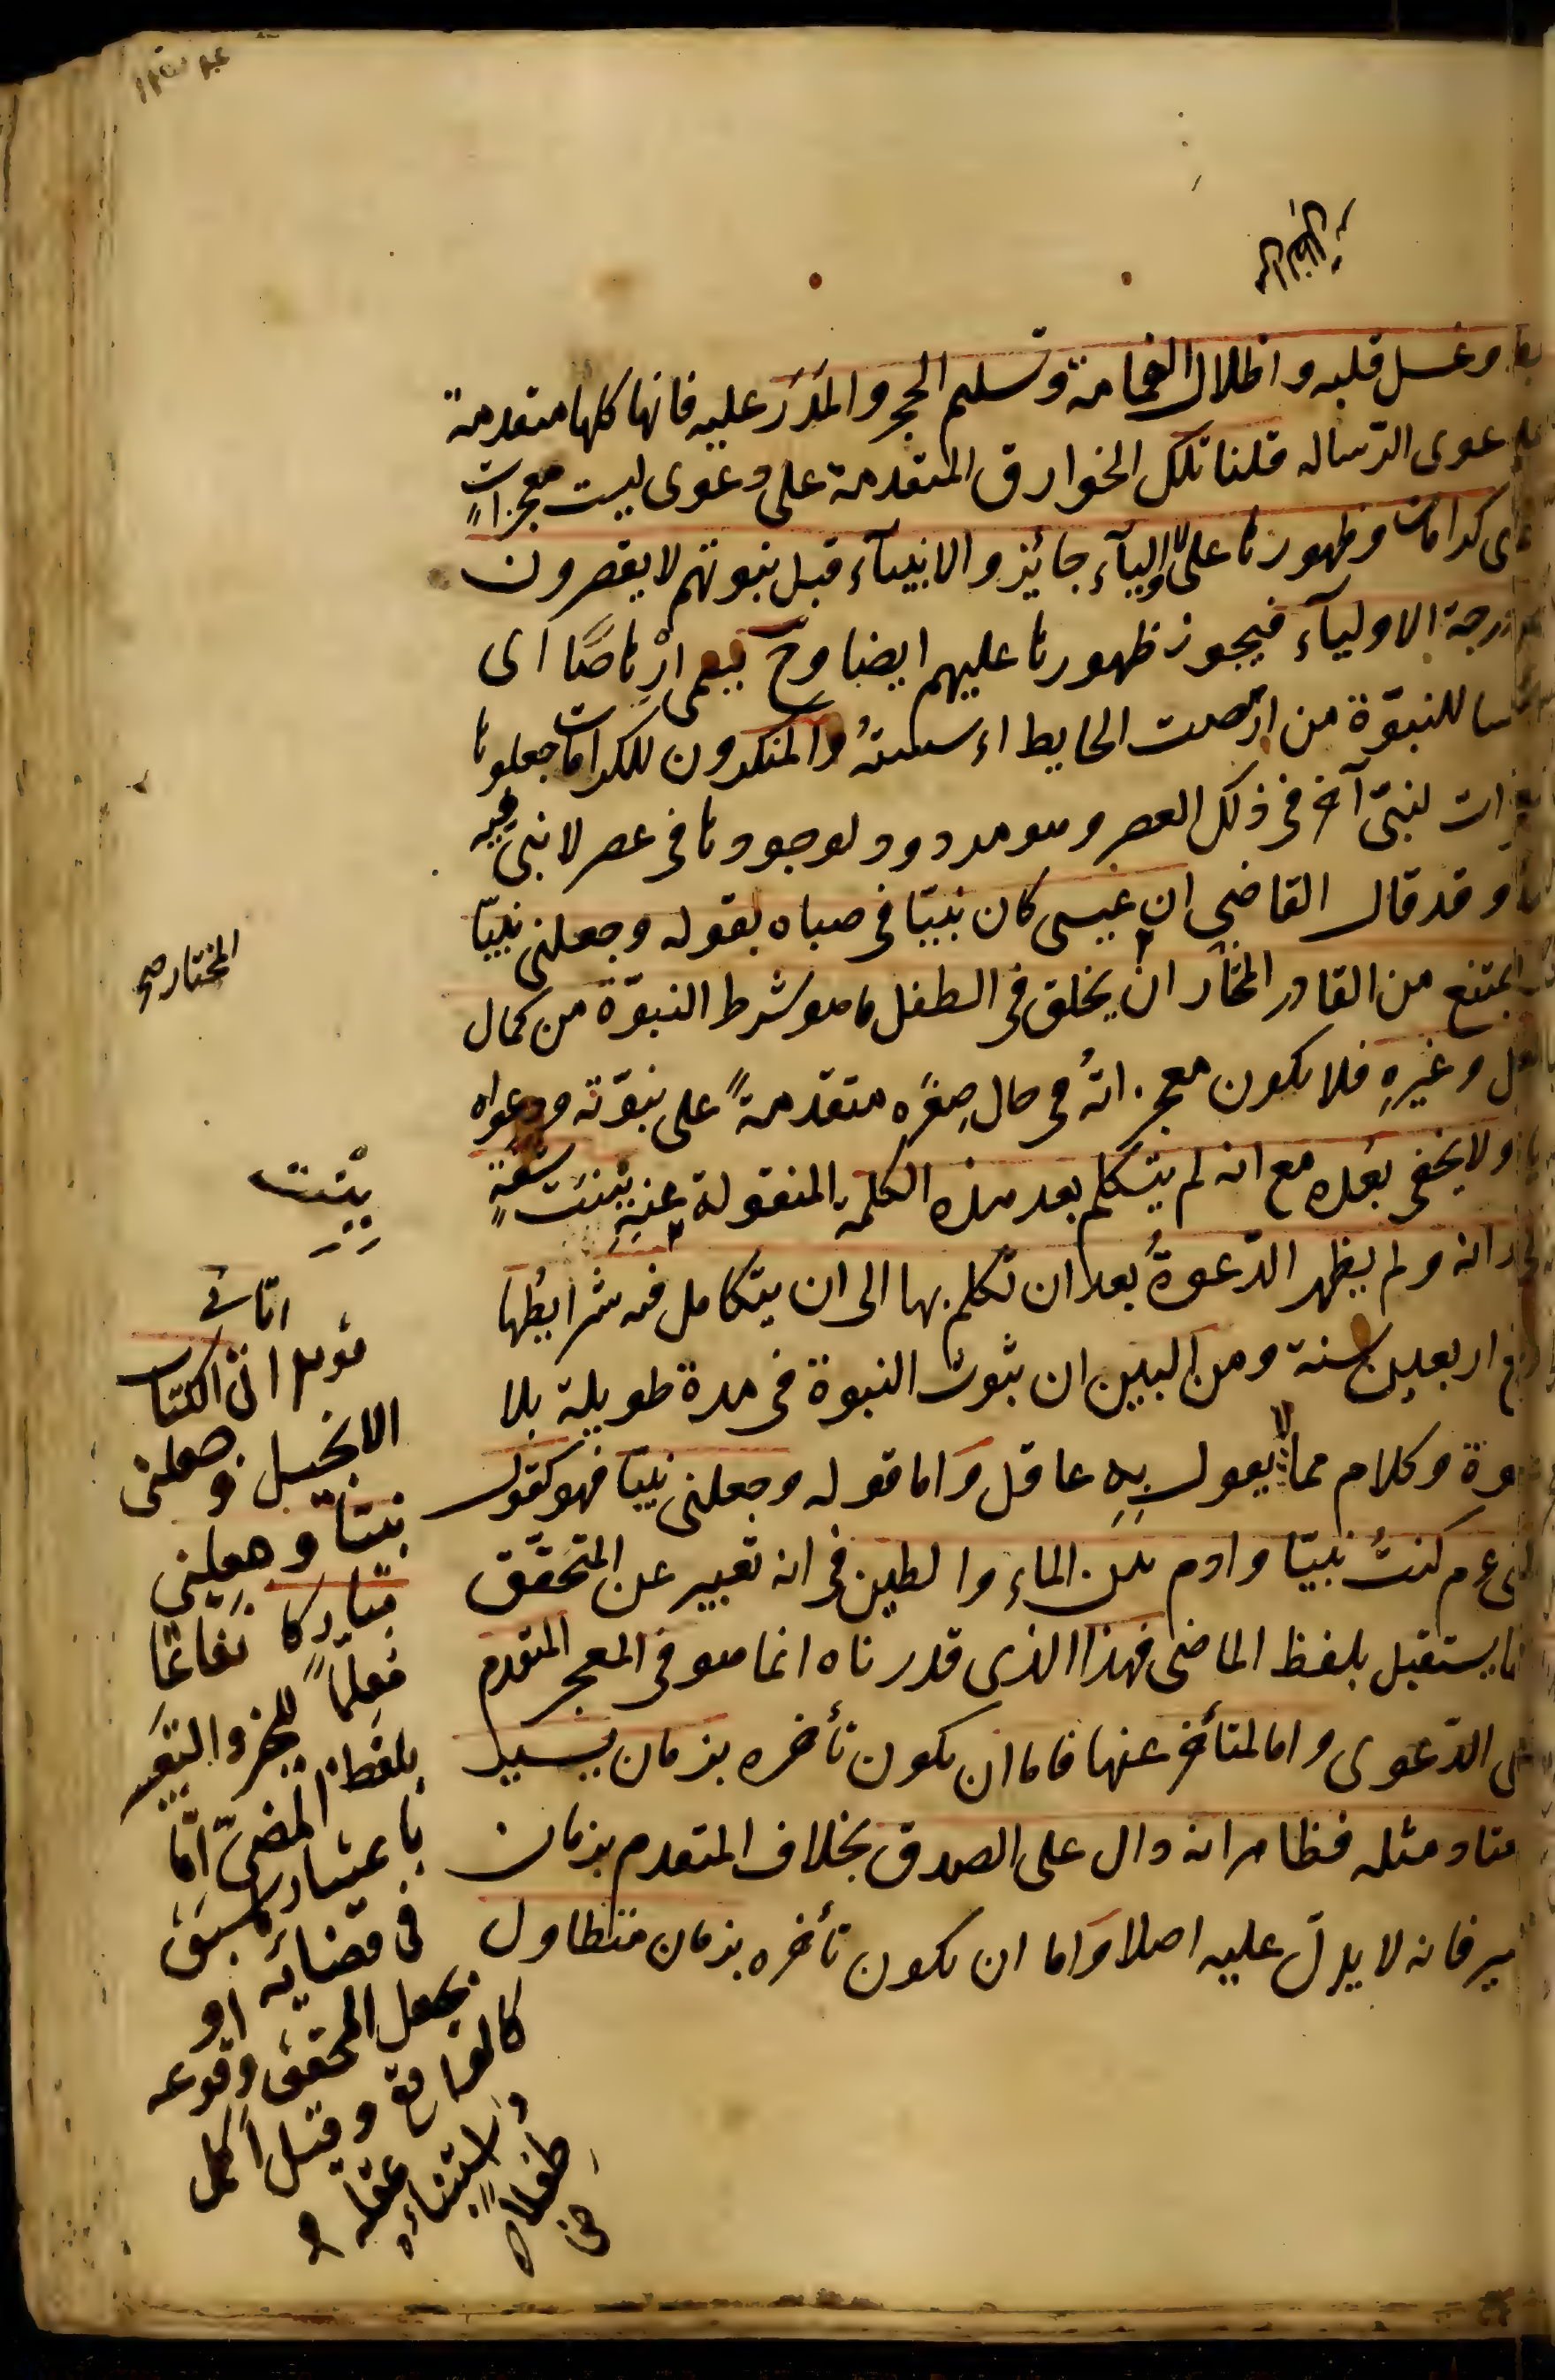 وغسل قلبه واظلال الغمامة وتسليم الحجر والمدر عليه فانها كلها متقدمة
عوى الرسالة قلنا تلك الخوارق المتقدمة على دعوى ليست معجزات
كرامات وظهورها على الاولياء جائز والانبياء قبل نبوتهم لا يقصرون
درجة الاولياء فيجوز ظهورها عليهم ايضا وح يسمى ارهاصًا اى
سا للنبوّة من ارهصت الحايط اى اسسته والمنكرون للكرامات جعلوها
ات لنبىّ آخر فى ذلك العصر وهو مردود لوجودها فى عصر لا نبى فيه
وقد قال القاضى ان عيسى كان نبيّا فى صباه لقوله وجعلنى نبيّا
يمتنع من القادر المختار ان يخلق فى الطفل ما هو شرط النبوّة من كمال
وغيرهِ فلا يكون معجزاتهُ فى حال صِغَرِه متقدّمةً على نبوّته ودعواه
ولا يخفى بُعده مع انه لم يتكلم بعد هذه الكلمة المنقولة عنه ببنت شفةٍ
انه ولم يظهر الدّعوةُ بعد ان تكلم بها الى ان يتكامل فيه شرايطُها
اربعين سنة ومن البين ان ثبوت النبوة فى مدة طويلة بلا
وة وكلام مما لا يقول بِهِ عاقل وَاما قوله وجعلنى نبيّا فهو كقول
عم كنتُ نبيّا وادم بين الماءِ والطين فى انه تعبير عن المتحقّق
يستقبل بلفظ الماضى فهذا الذى قدرناه انما هو فى المعجز المتقدم
الدّعوى واما المتأخر عنها فاما ان يكون تأخره بزمان يسير
متاد مثله فظاهر انه دال على الصدق بخلاف المتقدم بزمان
ير فانه لا يدلّ عليه اصلا وَاما ان يكون تأخره بزمان متطاول
المختار صح
ببنت
اتانى
الكتاب
الانجيل وجعلنى
نبيّا وجعلنى
مباركا نفاعًا
معلّمًا للخير والتعبير
بلفظ المضىّ امّا
باعتبار ما سبق
فى قضائه او
بجعل المحقق وقوعه
كالواقع وقيل اكمل
عقله
واستنباءه
طفلاً